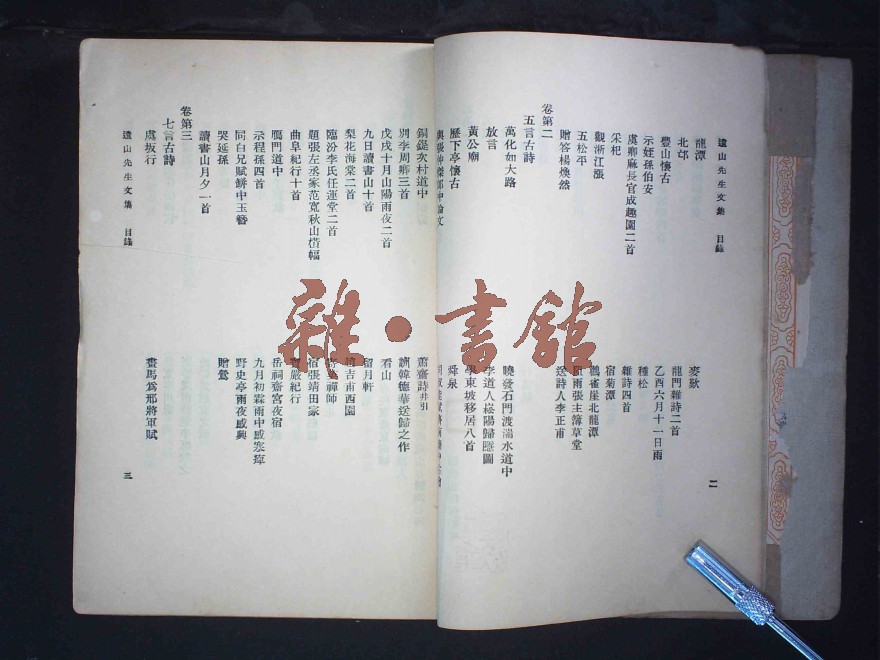 遺山先生文集 目錄
二
龍潭
麥歎
北邙
龍門雜詩二首
豐山懷古
乙酉六月十一日雨
示姪孫伯安
種松
虞卿麻長官成趣園二首
雜詩四首
采杞
宿菊潭
觀浙江漲
鶴雀崖北龍潭
五松平
雨張主簿草堂
贈答楊煥然
送詩人李正甫
卷第二
五言古詩
萬化如大路
曉發石門渡湍水道中
放言
李道人崧陽歸隱圖
黃公廟
學東坡移居八首
歷下亭懷古
舜泉
與張仲傑郎中論文
銅鍉次村道中
蕭齋詩并引
別李周卿三首
訓韓德華送歸之作
戊戌十月山陽雨夜二首
看山
九日讀書山十首
留月軒
梨花海棠二首
吉甫西園
臨汾李氏任運堂二首
禪師
題張左丞家范寬秋山橫幅
宿張靖田家
曲阜紀行十首
嚴紀行
鴈門道中
岳祠齋宮夜宿
示程孫四首
九月初霖雨中感寒痺
同白兄賦餅中玉簪
野史亭雨夜感興
哭延孫
贈鶯
讀書山月夕二首
卷第三
七言古詩
虞坂行
畫馬爲邢將軍賦
遺山先生文集 目錄
三
雜·書館